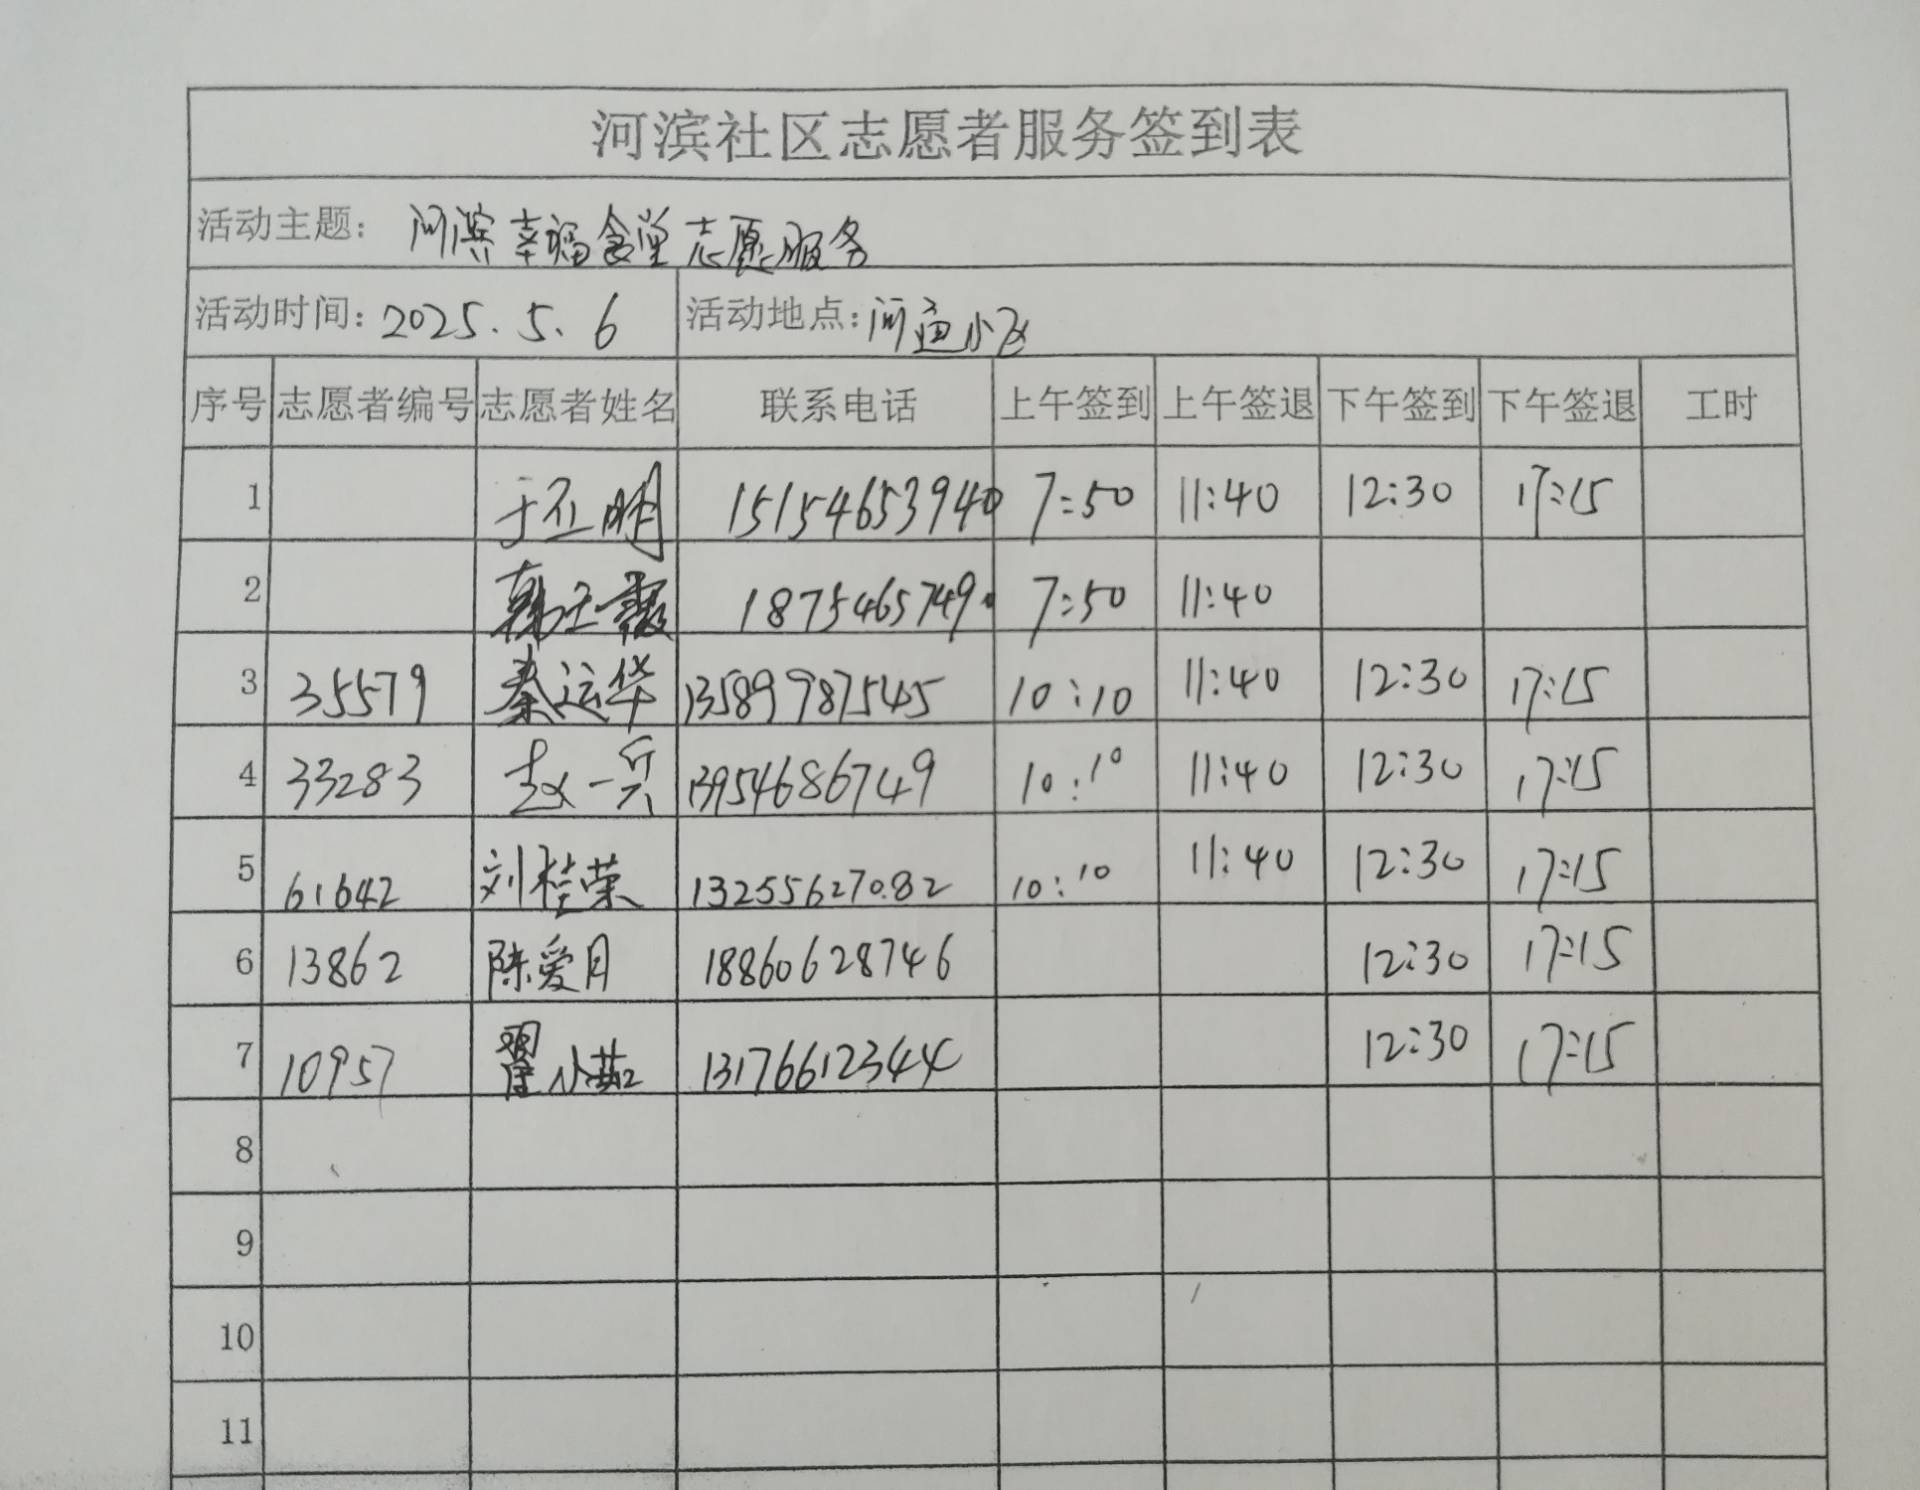 河滨社区志愿者服务签到表
活动主题: 河滨幸福食堂志愿服务
活动时间: 2025.5.6 活动地点: 河通小区
序号 志愿者编号 志愿者姓名 联系电话 上午签到 上午签退 下午签到 下午签退 工时
1 于丕明 15154653940 7:50 11:40 12:30 17:15
2 1875465749 7:50 11:40
3 35579 秦运华 13589987545 10:10 11:40 12:30 17:15
4 33283 赵一兵 13954686749 10:10 11:40 12:30 17:15
5 61642 刘桂荣 13255627082 10:10 11:40 12:30 17:15
6 13862 陈爱月 18860628746 12:30 17:15
7 10957 翟小茹 13176612344 12:30 17:15
8
9
10
11